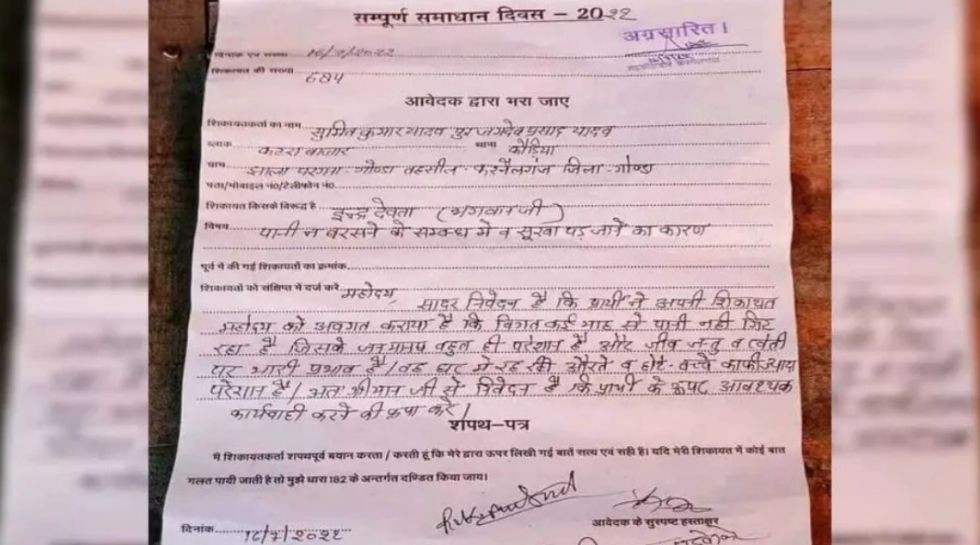 सम्पूर्ण समाधान दिवस – 2022
अग्रसारित।
दिनांक एवं संख्या 16/7/2022
शिकायत की संख्या 684
आवेदक द्वारा भरा जाए
शिकायतकर्ता का नाम सुमित कुमार यादव पुत्र जगदेव प्रसाद यादव
ब्लाक कटरा बाजार थाना कौडिया
ग्राम झाला परगना गोण्डा तहसील करनैलगंज जिला-गोण्डा
पता/मोबाइल नं०/टेलीफोन नं०
शिकायत किसके विरूद्ध है इन्द्र देवता (भगवान जी)
विषय पानी न बरसने के सम्बन्ध में व सूखा पड़ जाने का कारण
पूर्व में की गई शिकायतों का क्रमांक
शिकायतों को संक्षिप्त में दर्ज करें महोदय,
सादर निवेदन है कि प्रार्थी ने अपनी शिकायत
महोदय को अवगत कराया है कि विगत कई माह से पानी नही गिर
रहा है जिसके जनमानस बहुत ही परेशान है और जीव जन्तु व खेती
पर भारी प्रभाव है। में रह रही औरते व छोटे बच्चे काफी ज्यादा
परेशान है। अतः श्रीमान जी से निवेदन है कि प्रार्थी के आवश्यक
कार्यवाही करने की कृपा करें।
शपथ-पत्र
मैं शिकायतकर्ता शपथपूर्व बयान करता / करती हूं कि मेरे द्वारा ऊपर लिखी गई बातें सत्य एवं सही है। यदि मेरी शिकायत में कोई बात
गलत पायी जाती है तो मुझे धारा 182 के अन्तर्गत दण्डित किया जाय।
दिनांक 16/7/2022
आवेदक के सुस्पष्ट हस्ताक्षर